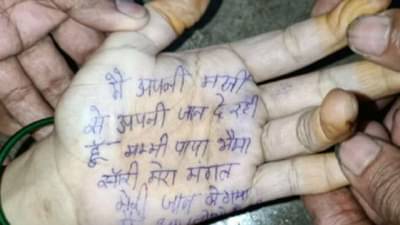 मै अपनी मर्जी
से अपनी जान दे रही
हूँ मम्मी पापा भैया
सॉरी मेरा
मेरी जान